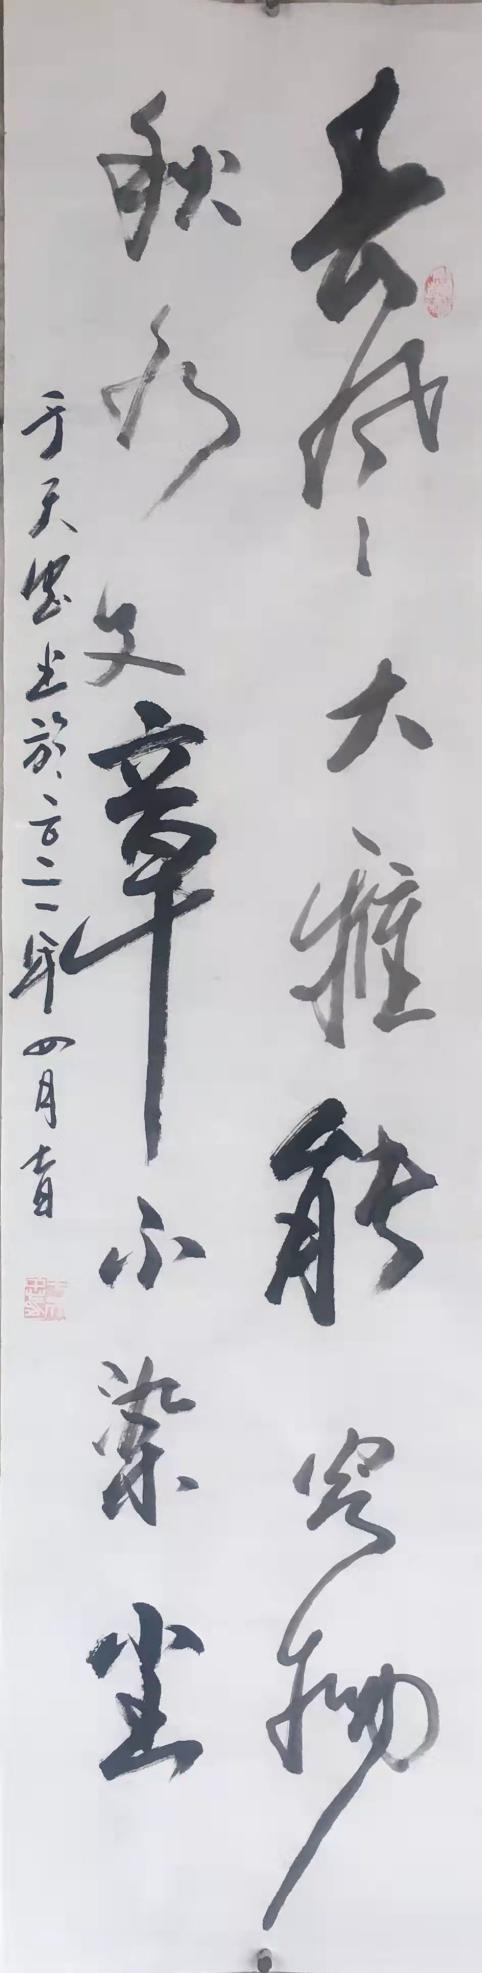 春风大雅能容物
秋水文章不染尘
于天书於二〇二一年四月吉日